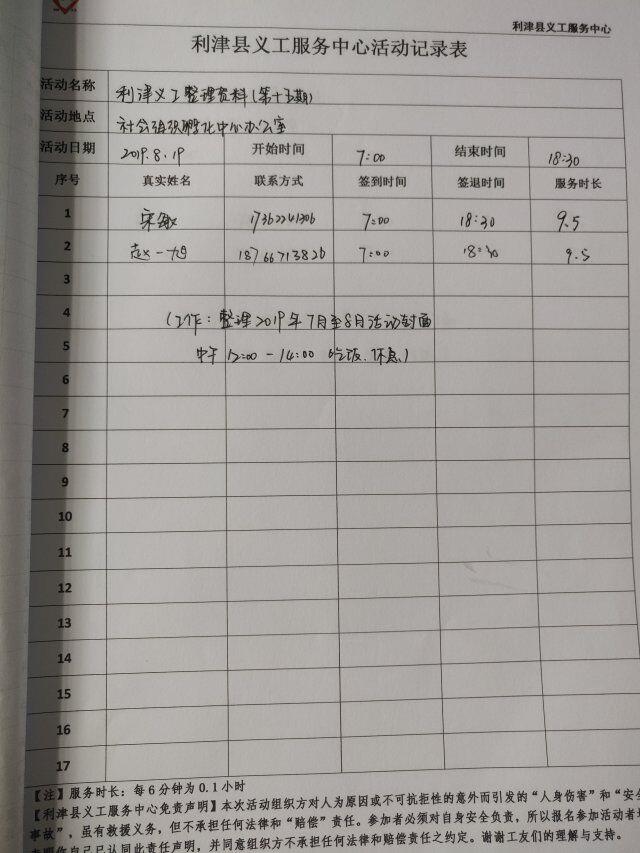 利津县义工服务中心
利津县义工服务中心活动记录表
活动名称 利津义工整理资料(第十五期)
活动地点 社会组织孵化中心办公室
活动日期 2019.8.19 开始时间 7:00 结束时间 18:30
序号 真实姓名 联系方式 签到时间 签退时间 服务时长
1 宋敏 17362241306 7:00 18:30 9.5
2 赵一旭 18766713826 7:00 18:30 9.5
3
4 (工作:整理2019年7月至8月活动封面
5 中午12:00-14:00吃饭、休息)
6
7
8
9
10
11
12
13
14
15
16
17
【注】服务时长:每6分钟为0.1小时
【利津县义工服务中心免责声明】本次活动组织方对人为原因或不可抗拒性的意外而引发的“人身伤害”和“安全
事故”,虽有救援义务,但不承担任何法律和“赔偿”责任。参加者必须对自身安全负责,所以报名参加活动者
你自己已认同此责任声明,并同意组织方不承担任何法律和赔偿责任之约定。谢谢工友们的理解与支持。